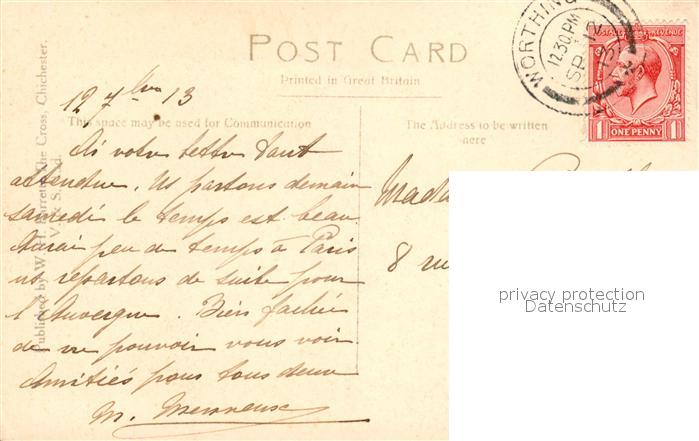 POST CARD
Printed in Great Britain
WORTHING
12.30 PM
SP 12
13
POSTAGE REVENUE
1 ONE PENNY 1
Published by W. H. Barrett, The Cross, Chichester.
V. & S.
This space may be used for Communication
The Address to be written
here
12 7bre 13
Ai votre lettre tant
attendue. Ns partons demain
samedi le temps est beau
Aurai peu de temps à Paris
ns repartons de suite pour
l'Auvergne. Bien fachée
de ne pouvoir vous voir
Amitiés pour tous deux
M.
Mada
8 rue
privacy protection
Datenschutz